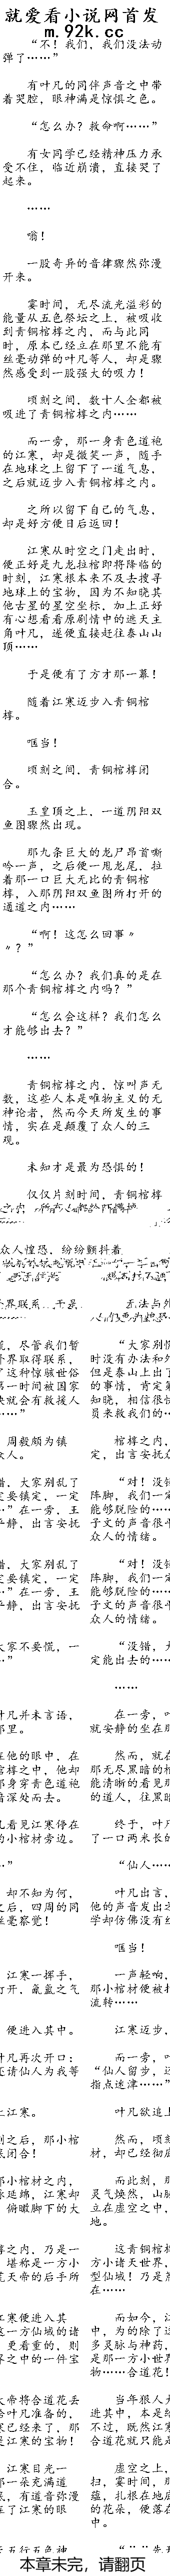 就爱看小说网首发
m.92k.cc
“不！我们，我们没法动
弹了……”
有叶凡的同伴声音之中带
着哭腔，眼神满是惊惧之色。
“怎么办？救命啊……”
有女同学已经精神压力承
受不住，临近崩溃，直接哭了
起来。
……
嗡！
一股奇异的音律骤然弥漫
开来。
霎时间，无尽流光溢彩的
能量从五色祭坛之上，被吸收
到青铜棺椁之内，而与此同
时，原本已经立在那里不能有
丝毫动弹的叶凡等人，却是骤
然感受到一股强大的吸力！
顷刻之间，数十人全都被
吸进了青铜棺椁之内……
而一旁，那一身青色道袍
的江寒，却是微笑一声，随手
在地球之上留下了一道气息，
之后就迈步入青铜棺椁之内。
之所以留下自己的气息，
却是好方便日后返回！
江寒从时空之门走出时，
便正好是九龙拉棺即将降临的
时刻，江寒根本来不及去搜寻
地球上的宝物，因为不知晓其
他古星的星空坐标，加上正好
有心想看看原剧情中的遮天主
角叶凡，遂便直接赶往泰山山
顶……
于是便有了方才那一幕！
随着江寒迈步入青铜棺
椁。
哐当！
顷刻之间，青铜棺椁闭
合。
玉皇顶之上，一道阴阳双
鱼图骤然出现。
那九条巨大的龙尸昂首嘶
吟一声，之后便一甩龙尾，拉
着那一口巨大无比的青铜棺
椁，入那阴阳双鱼图所打开的
通道之内……
“啊！这怎么回事〃
〃？”
“怎么办？我们真的是在
那个青铜棺椁之内吗？”
“怎么会这样？我们怎么
才能够出去？”
……
青铜棺椁之内，惊叫声无
数，这些人本是唯物主义的无
神论者，然而今天所发生的事
情，实在是颠覆了众人的三
观。
未知才是最为恐惧的！
仅仅片刻时间，青铜棺椁
众人惶恐，纷纷颤抖着
慌，尽管我们暂 “大家别慌
外界取得联系， 时没有办法和外
了这种惊骇世俗 但是泰山上出了
第一时间被国家 的事情，肯定第
快就会有救援人 知晓，相信很快
…” 员来救我们的…
周毅颇为镇 棺椁之内，
众人。 定，出言安抚众
错，大家别乱了 “对！没错
定要镇定，一定 阵脚，我们一定
…”在一旁，王 能够脱险的……
平静，出言安抚 子文的声音很平
众人的情绪。
错，大家别乱了 “对！没错
定要镇定，一定 阵脚，我们一定
…”在一旁，王 能够脱险的……
平静，出言安抚 子文的声音很平
众人的情绪。
大家不要慌，一 “没错，大
…” 定能出去的……
……
叶凡并未言语， 在一旁，叶
那里。 就安静的坐在那
在他的眼中，在 然而，就在
棺椁之中，他却 那无尽黑暗的棺
那身穿青色道袍 能清晰的看见那
暗深处而去。 的道人，往黑暗
凡看见江寒停在 终于，叶凡
的小棺材旁边。 了一口两米长的
…” “仙人……
却不知为何， 叶凡出言，
之后，四周的同 他的声音发出之
丝毫察觉！ 学却仿佛没有丝
哐当！
江寒一挥手， 一声轻响，
打开，氤氲之气 那小棺材便被打
流转……
便进入其中。 江寒迈步，
叶凡再次开口： 而一旁，叶
还请仙人为我等 “仙人留步，还
指点迷津……”
上江寒。 叶凡欲追上
刻之后，那小棺 然而，顷刻
底闭合！ 材，却已经彻底
那小棺材之内， 而此刻，那
脉延绵，江寒却 灵气焕然，山脉
俯瞰脚下的大 立在虚空之中，
地。
椁之内，乃是一 这青铜棺椁
堪称是一方小 方小诸天世界，
荒天帝的后手所 型仙域！乃是荒
在……
江寒便进入其 而如今，江
这一方仙域的诸 中，为的除了这
更看重的，则 多灵脉与神药，
界之中的一件宝 是那一方小世界
物……合道花！
大帝将合道花丢 当年狠人大
给叶凡准备的， 进其中，本是给
寒已经来了，那 不过，既然江寒
是江寒的宝物！ 合道花就只能是
江寒目光一 虚空之上，
那一朵充满道 扫，霎时间，那
，有道音弥漫 蕴，扎根在地底
在了江寒的眼 的花朵，便落在
中。
本章未完，请翻页